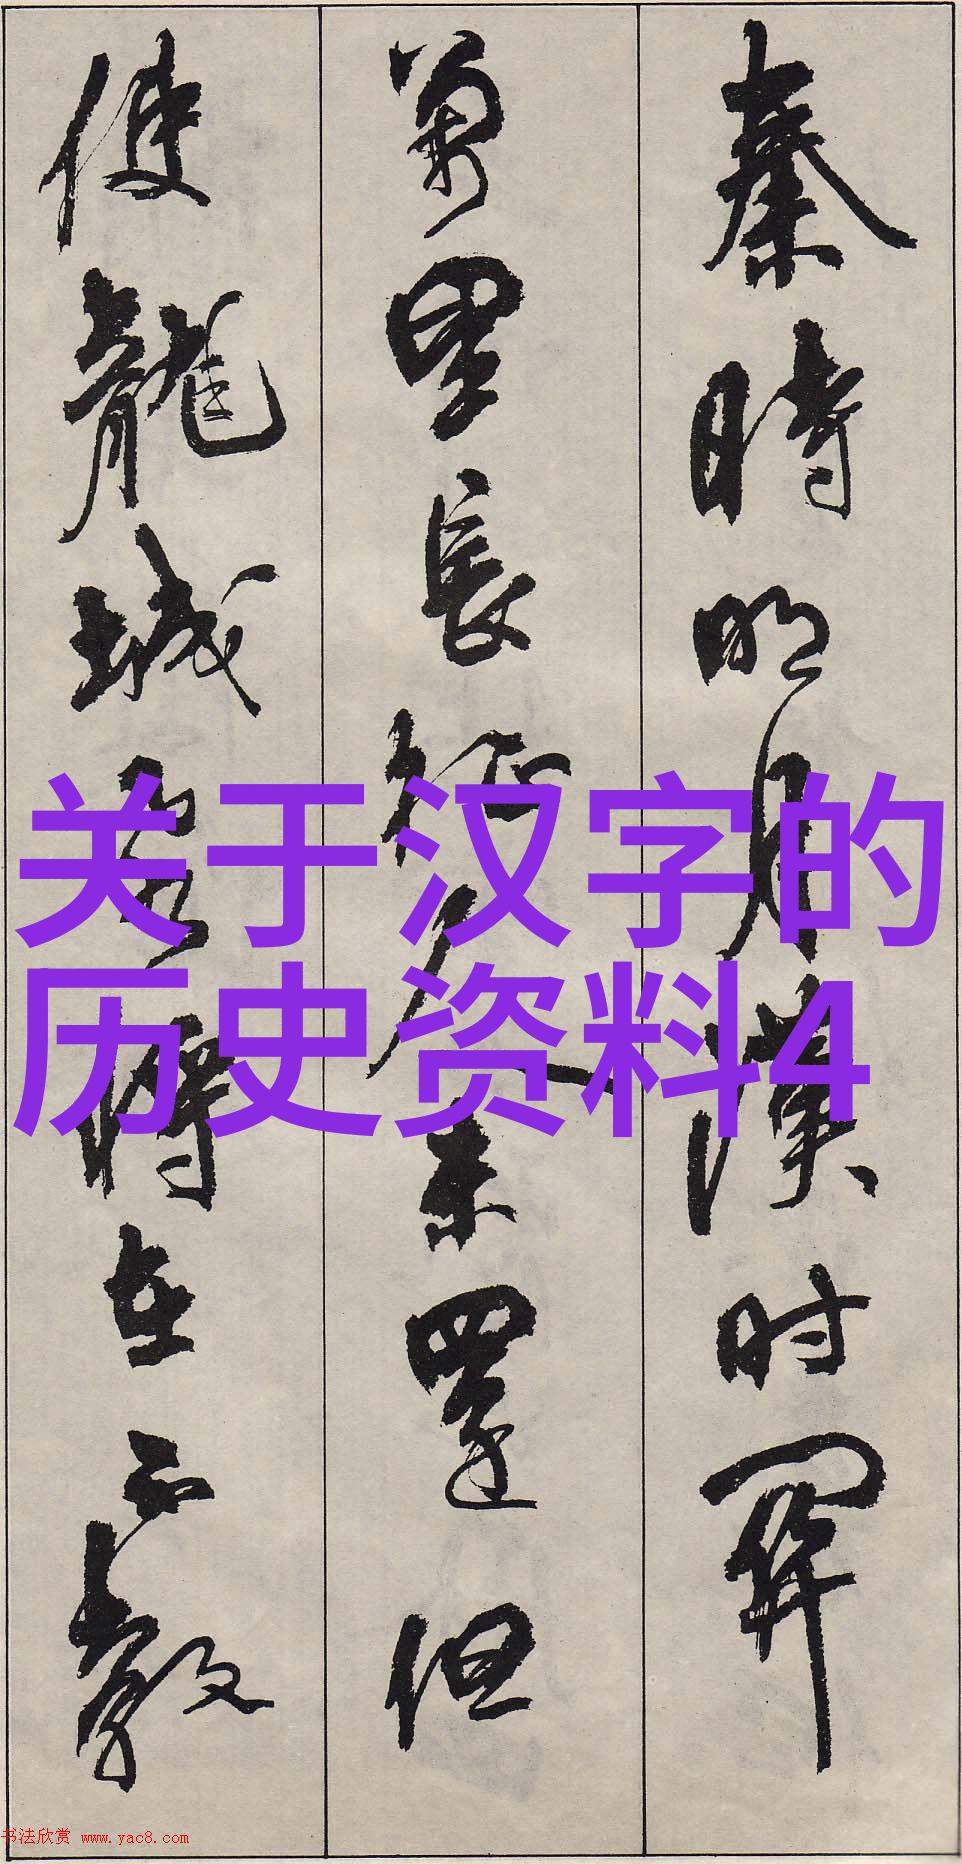 关于汉字的
历史资料4
秦時明月漢时關
萬里長征人未還但
使龍城飛將在不教
书法欣赏 www.yac8.com